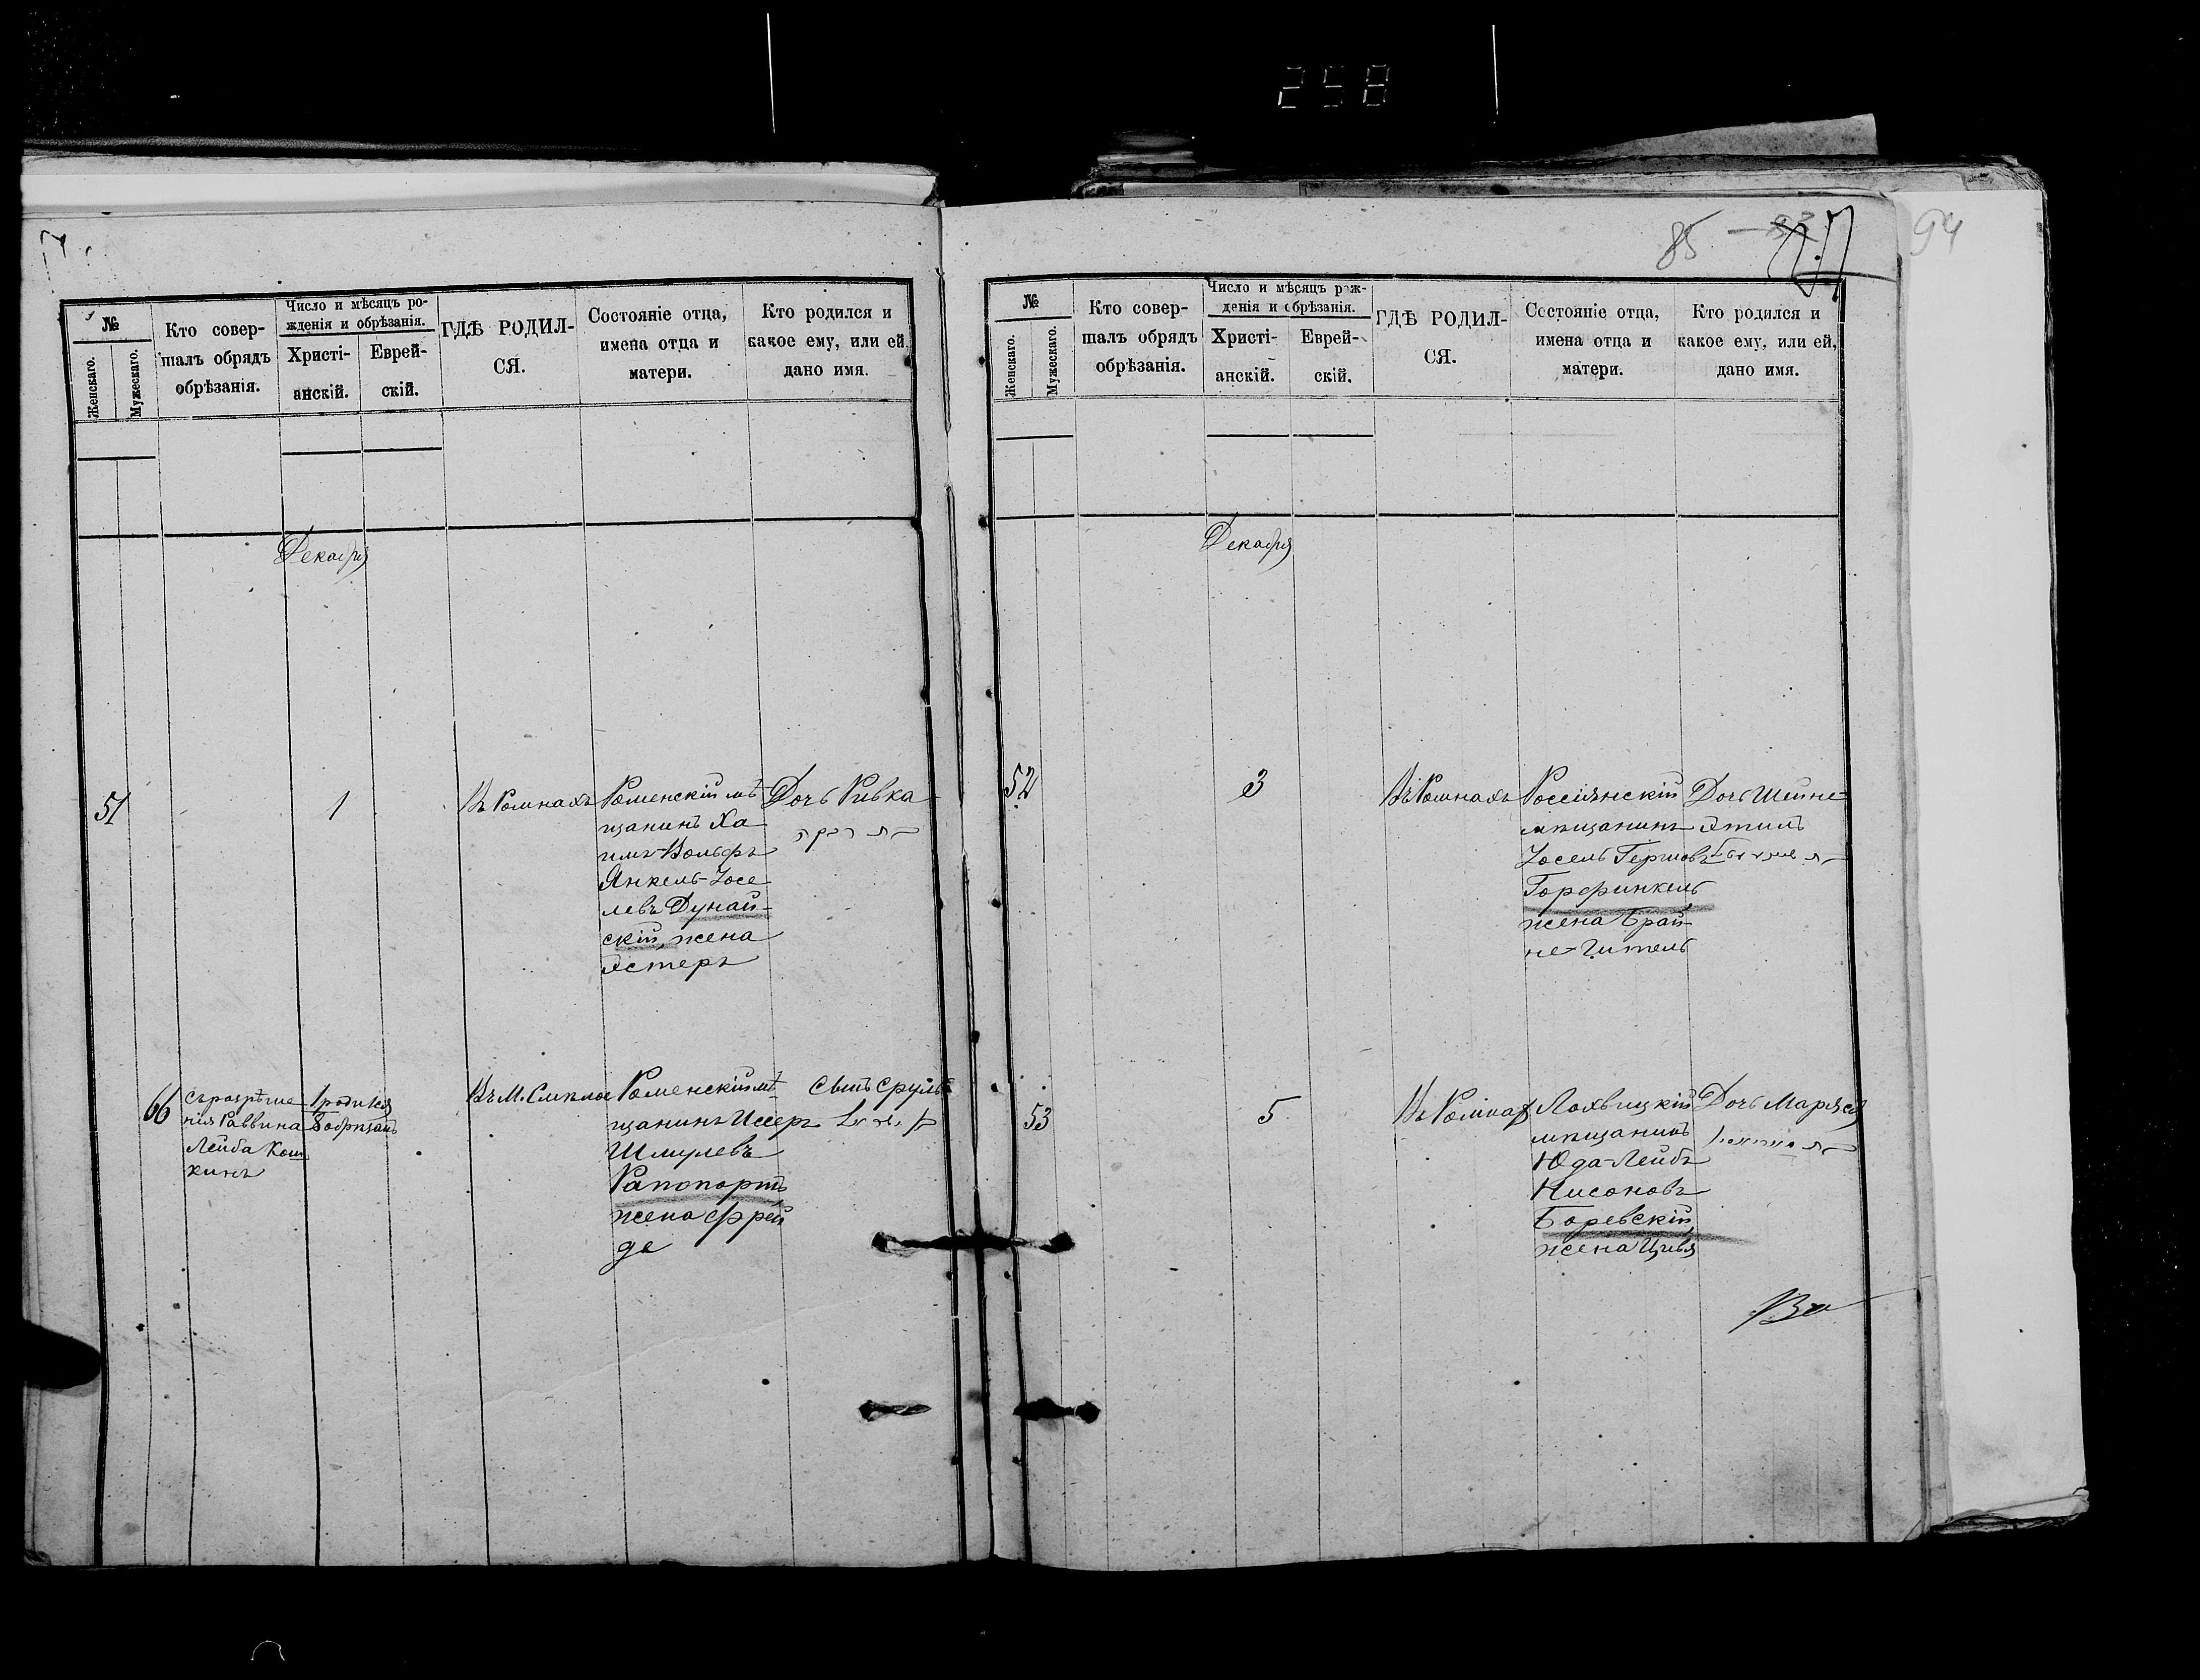 258
85
94
№
Женскаго.
Мужескаго.
Кто совер-
шалъ обрядъ
обрѣзанія.
Число и мѣсяцъ ро-
жденія и обрѣзанія.
Христі-
анскій.
Еврей-
скій.
ГДѢ РОДИЛ-
СЯ.
Состояніе отца,
имена отца и
матери.
Кто родился и
какое ему, или ей,
дано имя.
Декабря
51
1
Въ Ромнахъ
Роменскій мѣ-
щанинъ Ха
имъ-Вольфъ
Янкель-Іосе
левъ Дунай-
скій, жена
Эстеръ
Дочь Ривка
66
Съ разрѣше
нія Раввина
Лейба Кош
кинъ
1 родился
8 обрѣзанъ
Въ М. Смѣлое
Роменскій мѣ-
щанинъ Иссеръ
Шмулевъ
Рапопортъ
жена Фрей
да
Сынъ Сруль
№
Женскаго.
Мужескаго.
Кто совер-
шалъ обрядъ
обрѣзанія.
Число и мѣсяцъ рож-
денія и обрѣзанія.
Христі-
анскій.
Еврей-
скій.
ГДѢ РОДИЛ-
СЯ.
Состояніе отца,
имена отца и
матери.
Кто родился и
какое ему, или ей,
дано имя.
Декабря
52
3
Въ Ромнахъ
Россіянскій
мѣщанинъ
Іосель Гершовъ
Горфинкель
жена Брай-
не-Гитель
Дочь Шейне-
Этиль
53
5
Въ Ромнах
Лохвицкій
мѣщанинъ
Юда-Лейбъ
Нисоновъ
Боревскій,
жена Цивя
Дочь Маряся